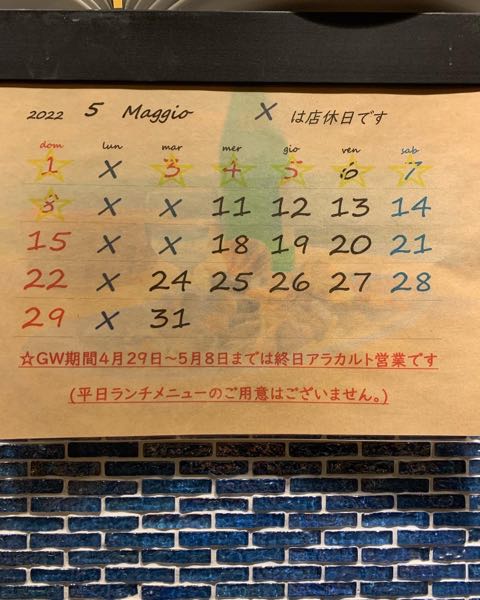 2022 5 Maggio X は店休日です
dom lun mar mer gio ven sab
1 X 3 4 5 6 7
8 X X 11 12 13 14
15 X X 18 19 20 21
22 X 24 25 26 27 28
29 X 31
☆GW期間4月29日～5月8日までは終日アラカルト営業です
(平日ランチメニューのご用意はございません。)